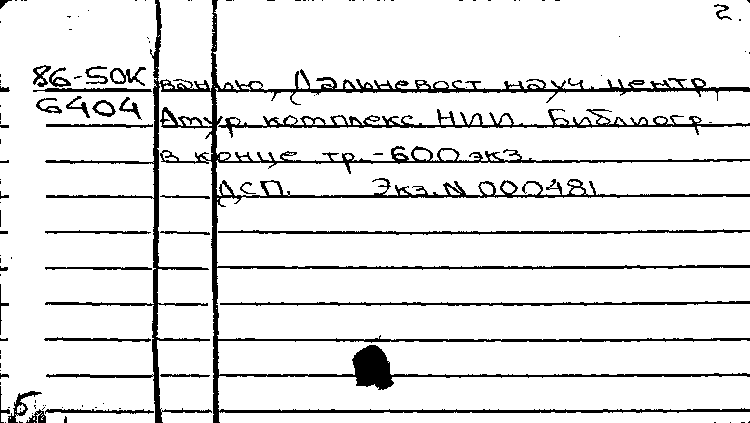 2.
86-50К ванию, Дальневост. науч. центр,
6404 Амур. комплекс. НИИ. Библиогр.
в конце тр.-600 экз.
ДСП. Экз. N 000481
Б